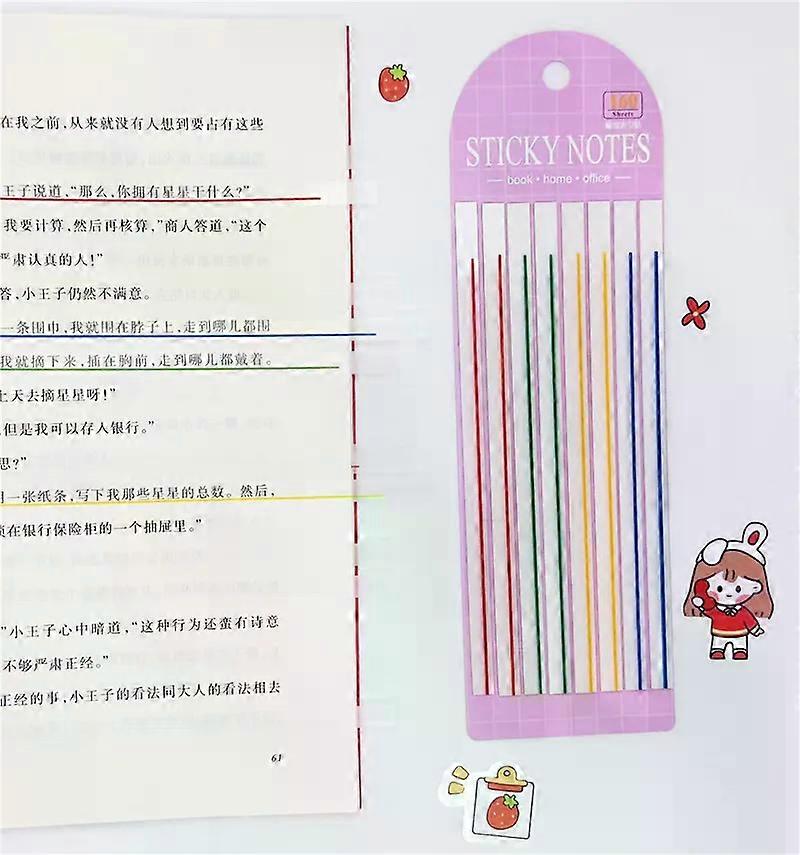 在我之前,从来就没有人想到要占有这些
王子说道,“那么,你拥有星星干什么?”
我要计算,然后再核算,”商人答道,“这个
严肃认真的人!”
答,小王子仍然不满意。
一条围巾,我就围在脖子上,走到哪儿都围
我就摘下来,插在胸前,走到哪儿都戴着。
上天去摘星星呀!”
但是我可以存人银行。”
思?”
用一张纸条,写下我那些星星的总数。然后,
锁在银行保险柜的一个抽屉里。”
”小王子心中暗道,“这种行为还蛮有诗意
不够严肃正经。”
正经的事,小王子的看法同大人的看法相去
61
160
Sheets
STICKY NOTES
book • home • office